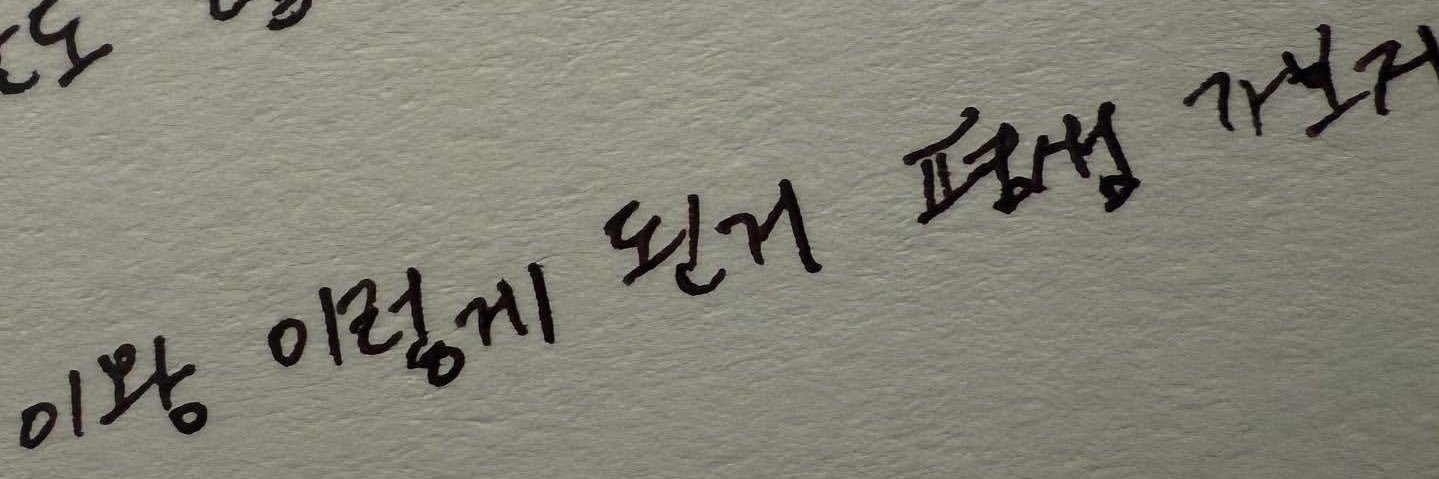 이왕 이렇게 된거 평생 가보자